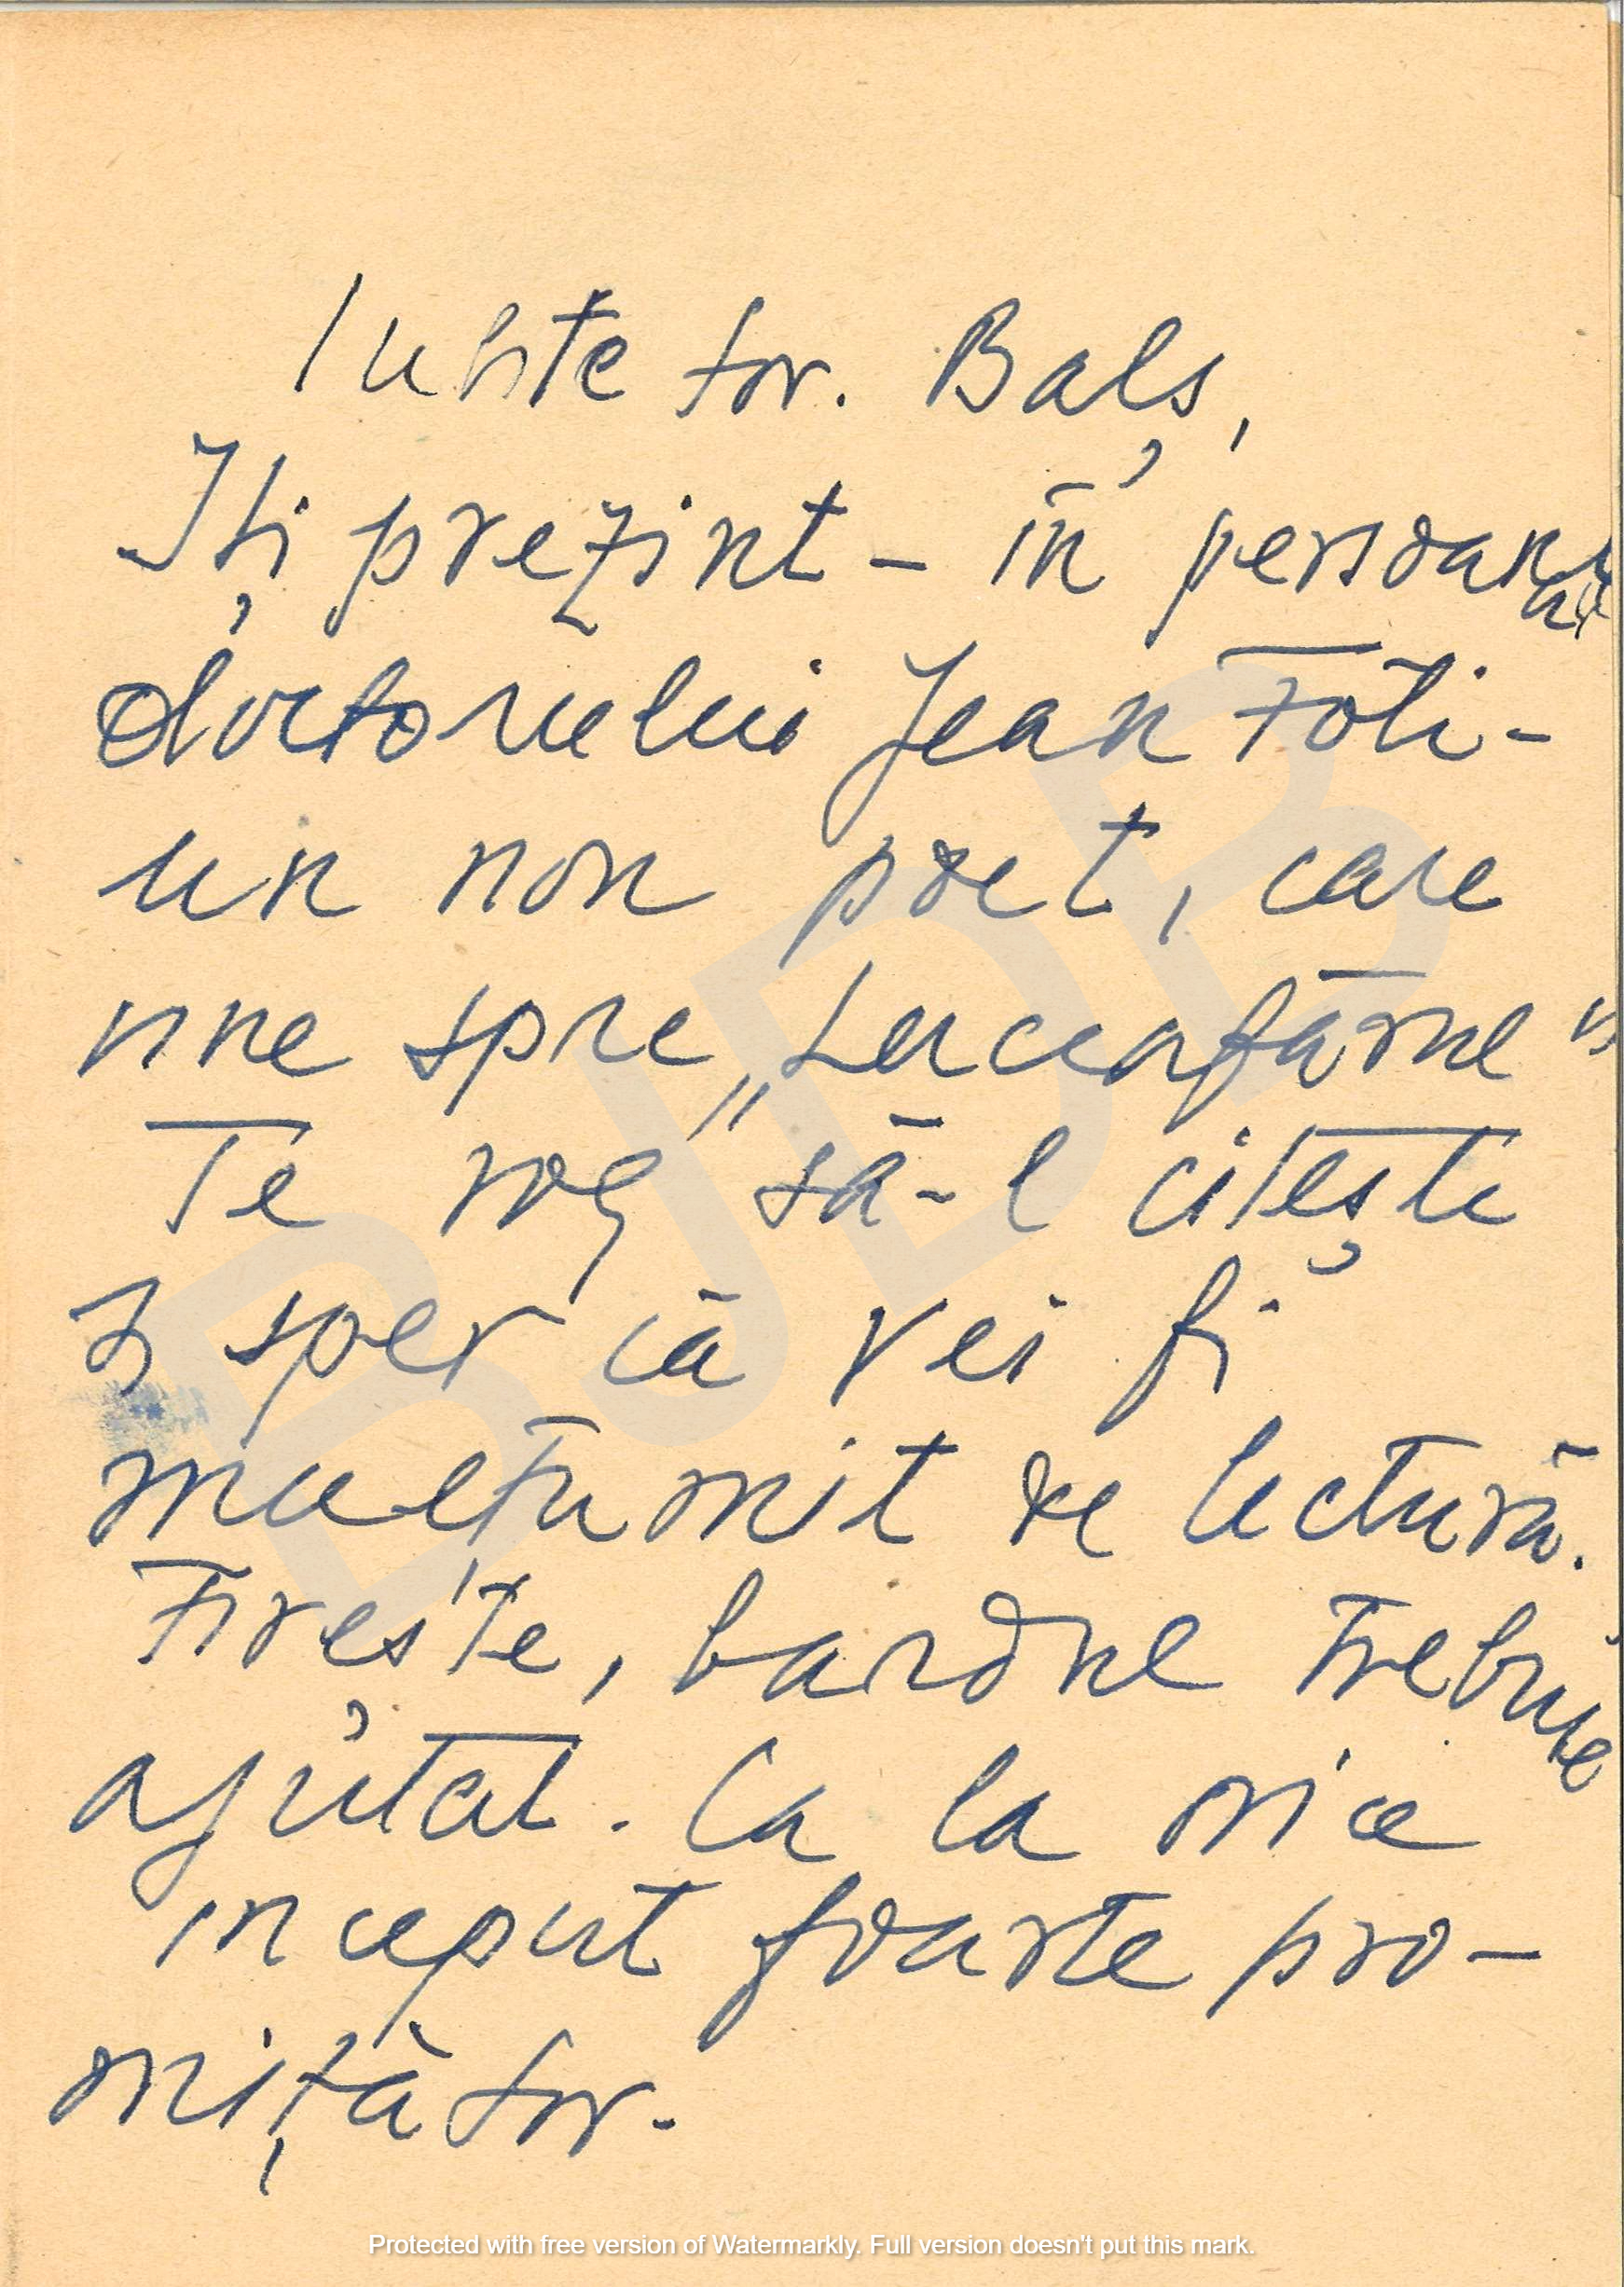 Iubite tov. Balș,
Iți prezint – în persoana
doctorului Jean Foti –
un nou poet, care
vine spre „Luceafărul”
Te rog să-l citești
și sper că vei fi
mulțumit de lectură.
Firește, bardul trebuie
ajutat. Ca la orice
inceput foarte pro-
mițător.
BJDB
Protected with free version of Watermarkly. Full version doesn't put this mark.